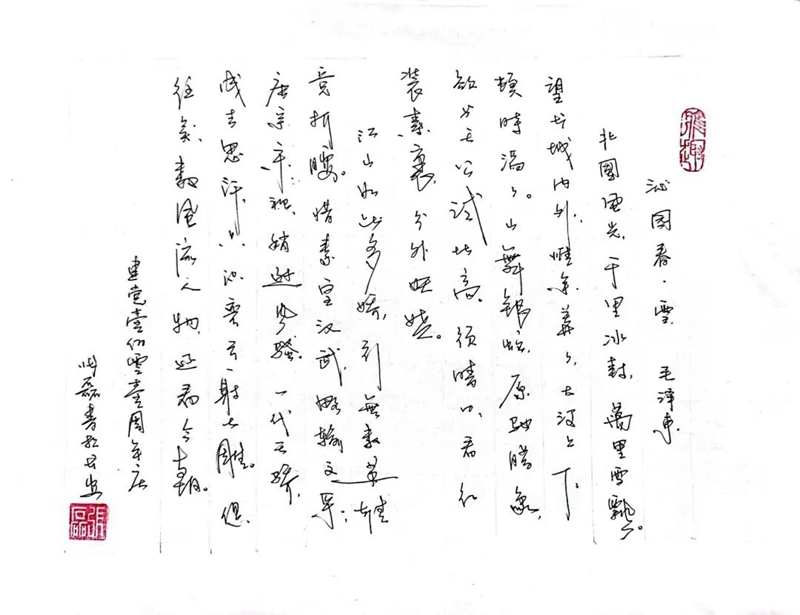 沁园春·雪 毛泽东
北國風光,千里冰封,萬里雪飄。
望长城内外,惟余莽々,大河上下,
頓時滔々。山舞銀蛇,原馳腊象,
欲与天公試比高。須晴日,看红
装素裹,分外妖娆。
江山如此多娇,引無數英雄
竞折腰。惜秦皇汉武,略输文采;
唐宗宋祖,稍逊风骚。一代天骄,
成吉思汗,只识弯弓射大雕。俱
往矣,数風流人物,还看今朝。
建党壹佰零壹周年庆
张磊書於
张磊